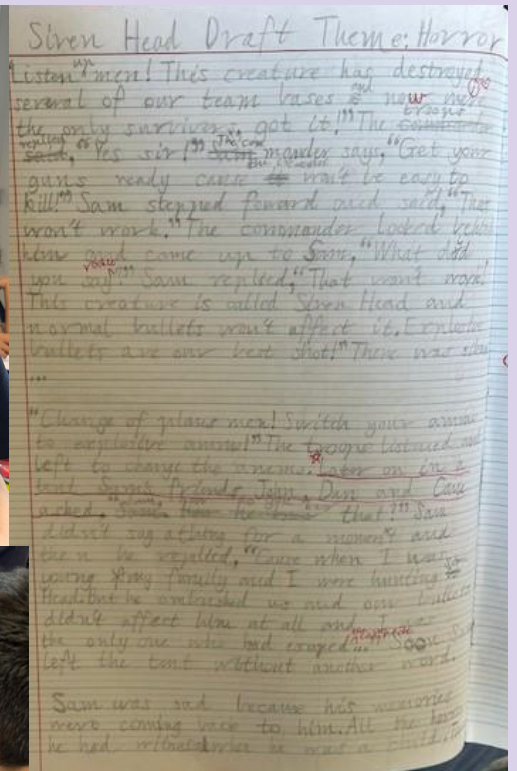 Siren Head Draft Theme: Horror
Listen up men! This creature has destroyed
several of our team bases and now were
the only survivers got it!" The troops
replied, "Yes sir!" The commander says, "Get your
guns ready cause won't be easy to
kill!" Sam stepped foward and said, "That
won't work." The commander looked behind
him and come up to Sam, "What did
you say?!" Sam replied, "That won't work!
This creature is called Siren Head and
normal bullets won't affect it. Explosive
bullets are our best shot!" There was
...
"Change of plans men! Switch your ammo
to explosive ammo!" The troops listened and
left to change the ammo. Later on in a
tent Sam's friends, John, Dan and
asked, that?" Sam
didn't say a thing for a moment and
then he replied, "Cause when I was
young my family and I were hunting
Head but he ambushed us and our bullets
didn't affect him at all and I was
the only one who had escaped
left the tent without another word.
Sam was sad because his memories
were coming back to him. All the
he had when he was a child.